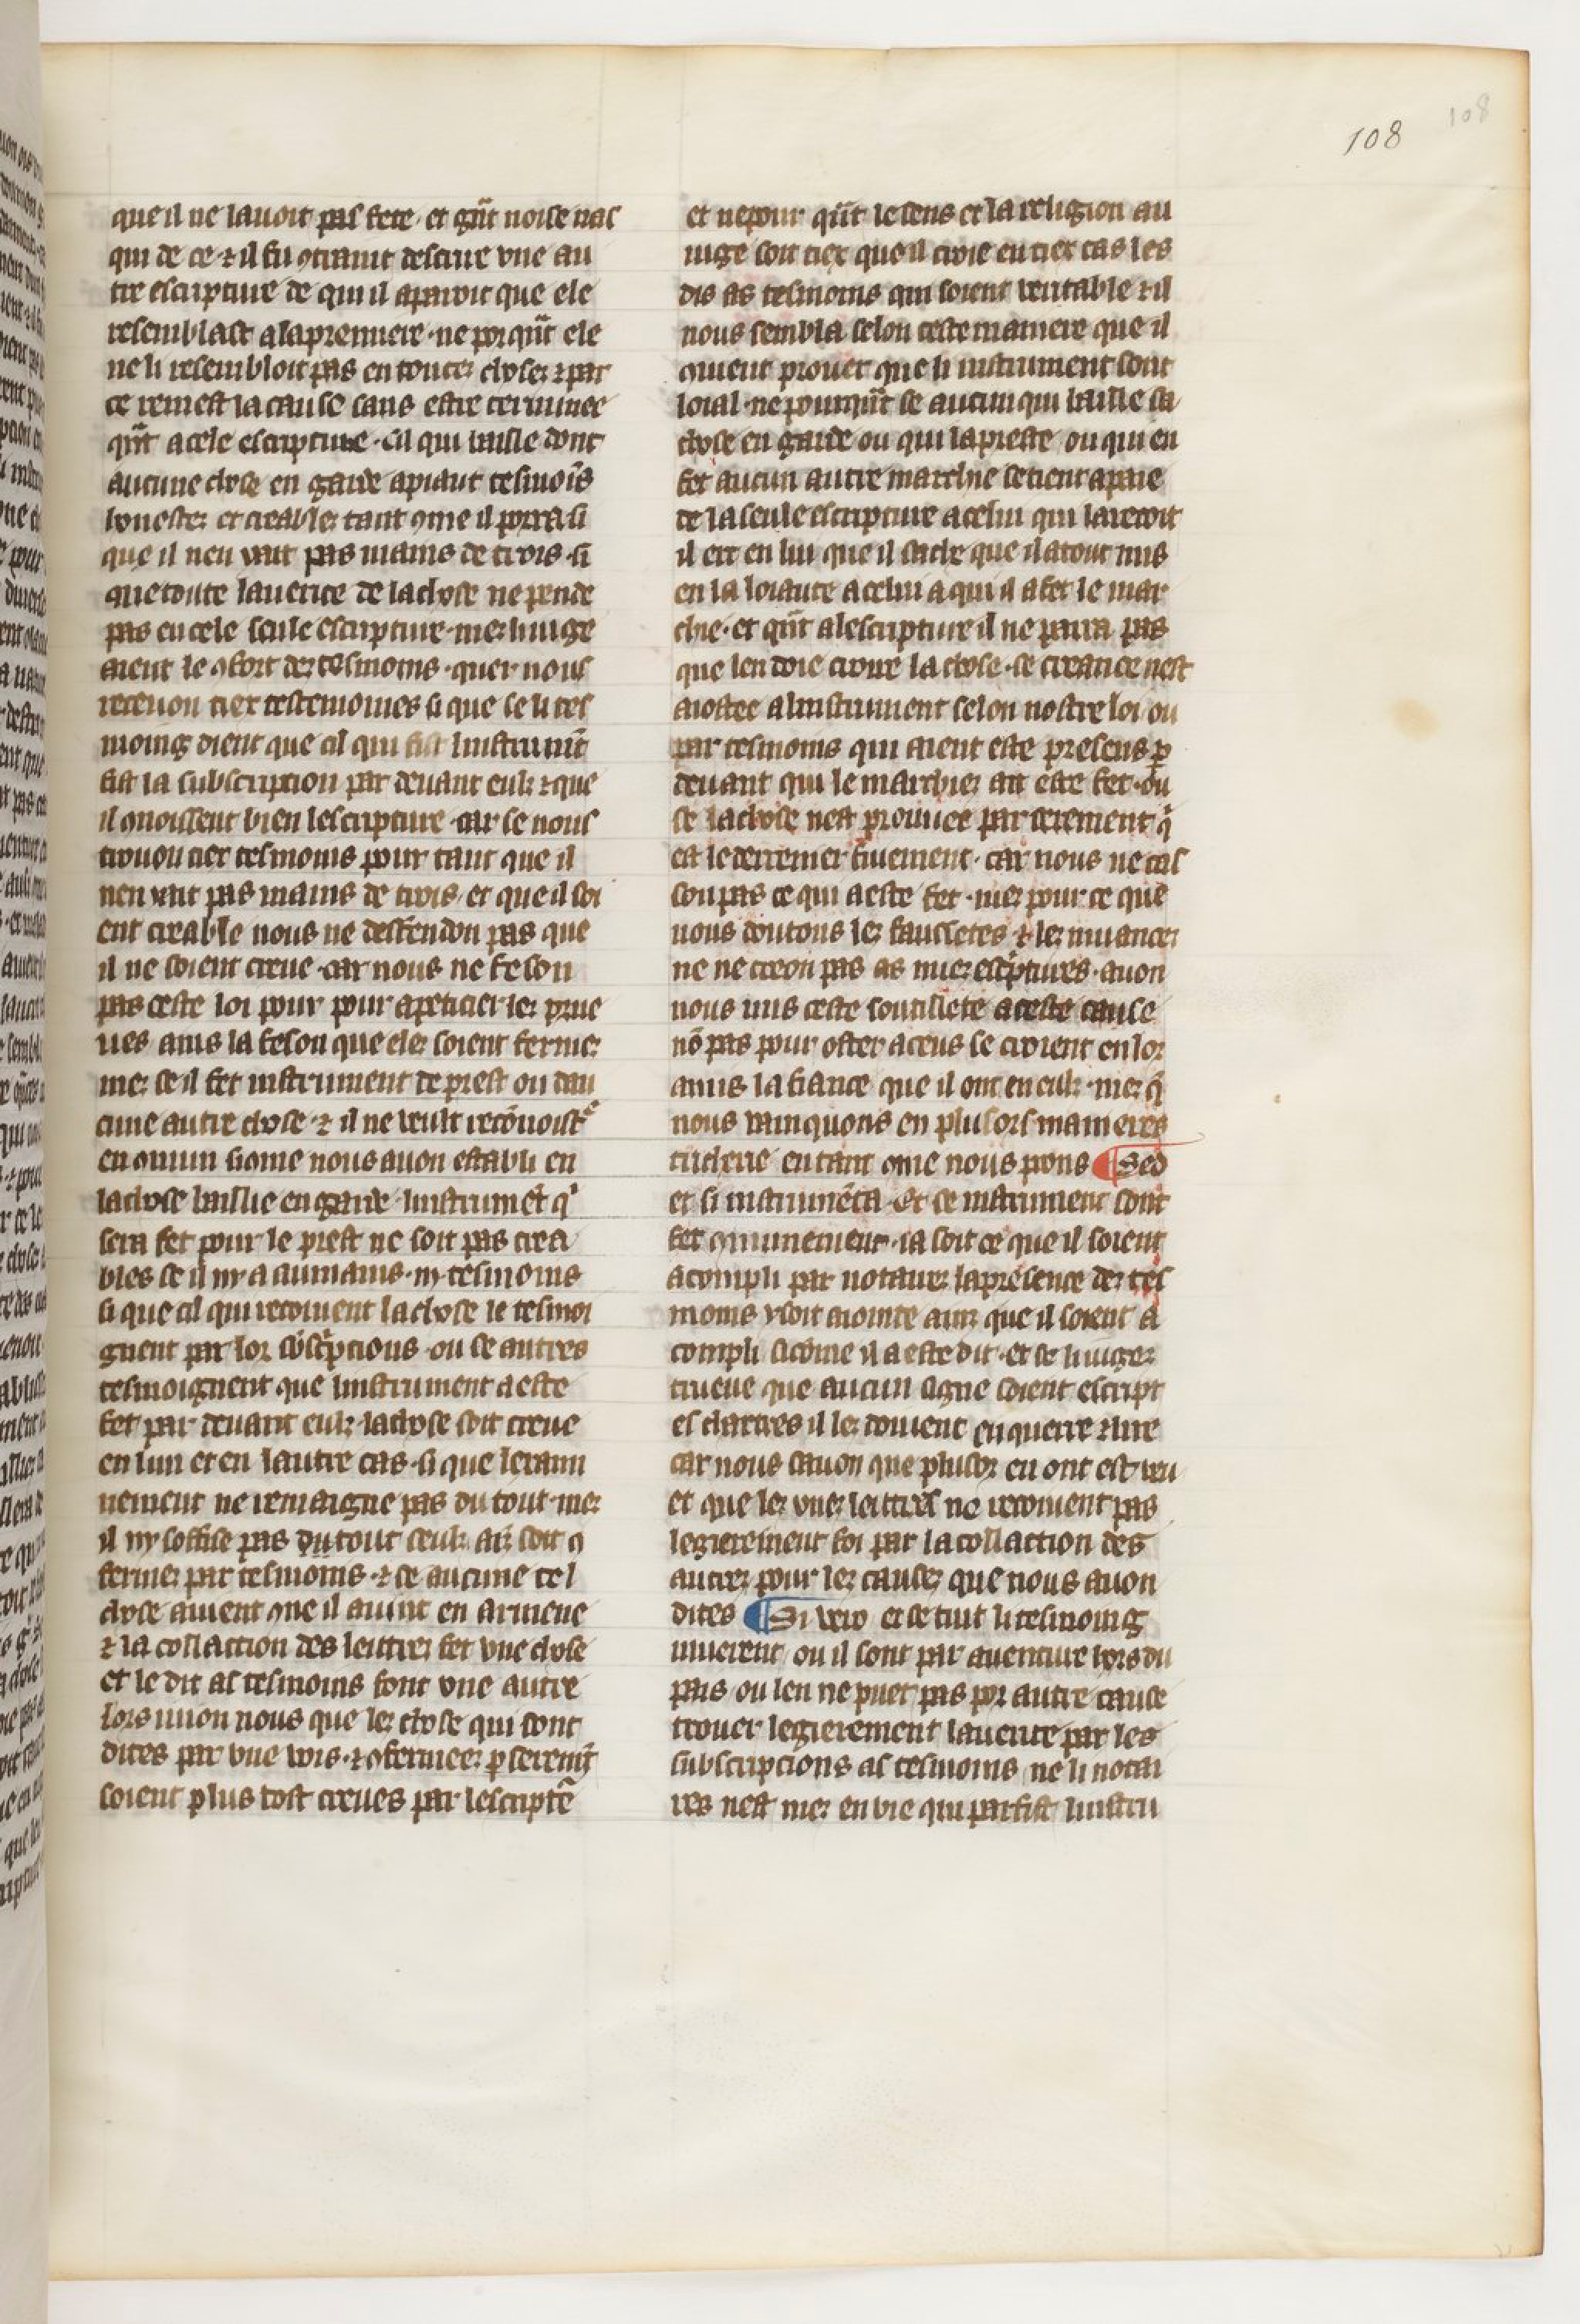 108
108
que il ne lauoit pas fete · et q̃nt noise nas
qui de ce ⁊ il fu ꝯtraint descrire vne au
tre escripture de qui il aparoit que ele
resemblast a la premiere · ne por qũt ele
ne li resembloit pas en toutez chosez ⁊ par
ce remest la cause sans estre terminee
qũt a cele escripture · Cil qui baille dont
aucune chose en garde apiaut tesmoĩs
honestez et creablez tant ꝯme il porra si
que il nen vait pas mains de trois · si
que toute la uerite de la chose ne pende
pas en cele seule escripture · mez li iuge
aient le ꝯfort dez tesmoins · quer nous
receuon tiex testemoines si que se li tes
moing dient que cil qui fist linstrumẽt
fist la subscription par deuant eulz ⁊ que
il ꝯnoissent bien lescripture · car se nous
trouuon tiex tesmoins pour tant que il
nen vait pas mains de trois · et que il soi
ent creable nous ne deffendon pas que
il ne soient creue · car nous ne feson
pas ceste loi pour pour apeticier lez prue
ues ains la feson que elez soient fermez
mez se il fet instrument de prest ou dau
cune autre chose · ⁊ il ne veult recõnoistᵉ
en ꝯmun si ome nous auon establi en
la chose baillie en garde · linstrumẽt qⁱ
sera fet pour le prest ne soit pas crea
bles se il ny a aumains · iij · tesmoins
si que cil qui recoiuent la chose le tesmoi
gnent par lor sб̃scͥpcions · ou se autres
tesmoignent que linstrument a este
fet par deuant eulz · la chose soit creue
en lun et en lautre cas · si que lexami
nement ne remaigne pas du tout · mez
il ny soffise pas du tout seulz aĩz soit ꝯ
fermez par tesmoins · ⁊ se aucune tel
chose auient ꝯme il auint en armenie
⁊ la collaction des leittrez fet vne chose
et le dit as tesmoins font vne autre
lors iuion nous que lez chose qui sont
dites par vne vois · ⁊ ꝯfermeez ꝑ seremẽt
soient plus tost creues par lescriptẽ
et ne pour qũt le sens et la religion au
iuge soit tiex que il croie en tiex cas les
dis as tesmoins qui soient veritable ⁊ il
nous sembla selon ceste maniere que il
ꝯuient prouer que li instrument sont
loial · ne pourqũt se aucun qui baille sa
chose en garde ou qui la preste ou qui en
fet aucun autre marchie se tient a paie
de la seule escripture a celui qui la recoit
il ert en lui que il sache que il a tout mis
en la loiaute a celui a qui il a fet le mar
chie · et qũt a lescripture il ne parra pas
que len doie croire la chose · se creance nest
aioustee a linstrument selon nostre loi ou
par tesmoins qui aient este presens ꝑ
deuant qui le marchiez ait este fet · ou
se la chose nest prouuee par serement q̃
est le derrenier fiuement · car nous ne cas
son pas ce qui a este fet · mez pour ce que
nous doutons lez faussetes ⁊ lez muancez
ne ne creon pas as nuez escͥptures · auon
nous mis ceste soutilliete a ceste cause
nõ pas pour oster a ceus se croient en lor
amis la fiance que il ont en eulz · mez q̃
nous vainquons en plusors manieres
tricherie en tant ꝯme nous pons ¶ Sed
et si instrumẽta · Et se instrument sont
fet ꝯmunement · ia soit ce que il soient
acompli par notairez la presence dez tes
moins y soit aiointe ainz que il soient a
compli si cõme il a este dit · et se li iugez
trueue que aucun signe soient escript
es chartres il lez doiuent enquerre ⁊ lire
car nous sauon que plusor en ont est veu
et que lez vnez leittres ne recoiuent pas
legierement foi par la collaction des
autrez pour lez causez que nous auon
dites ¶ Si vero et se tuit li tesmoing
muerent · ou il sont par auenture hors du
pais ou len ne puet pas por autre cause
trouer legierement la uerite par les
subscripcions as tesmoins ne li notai
res nest mez en vie qui parfist linstru